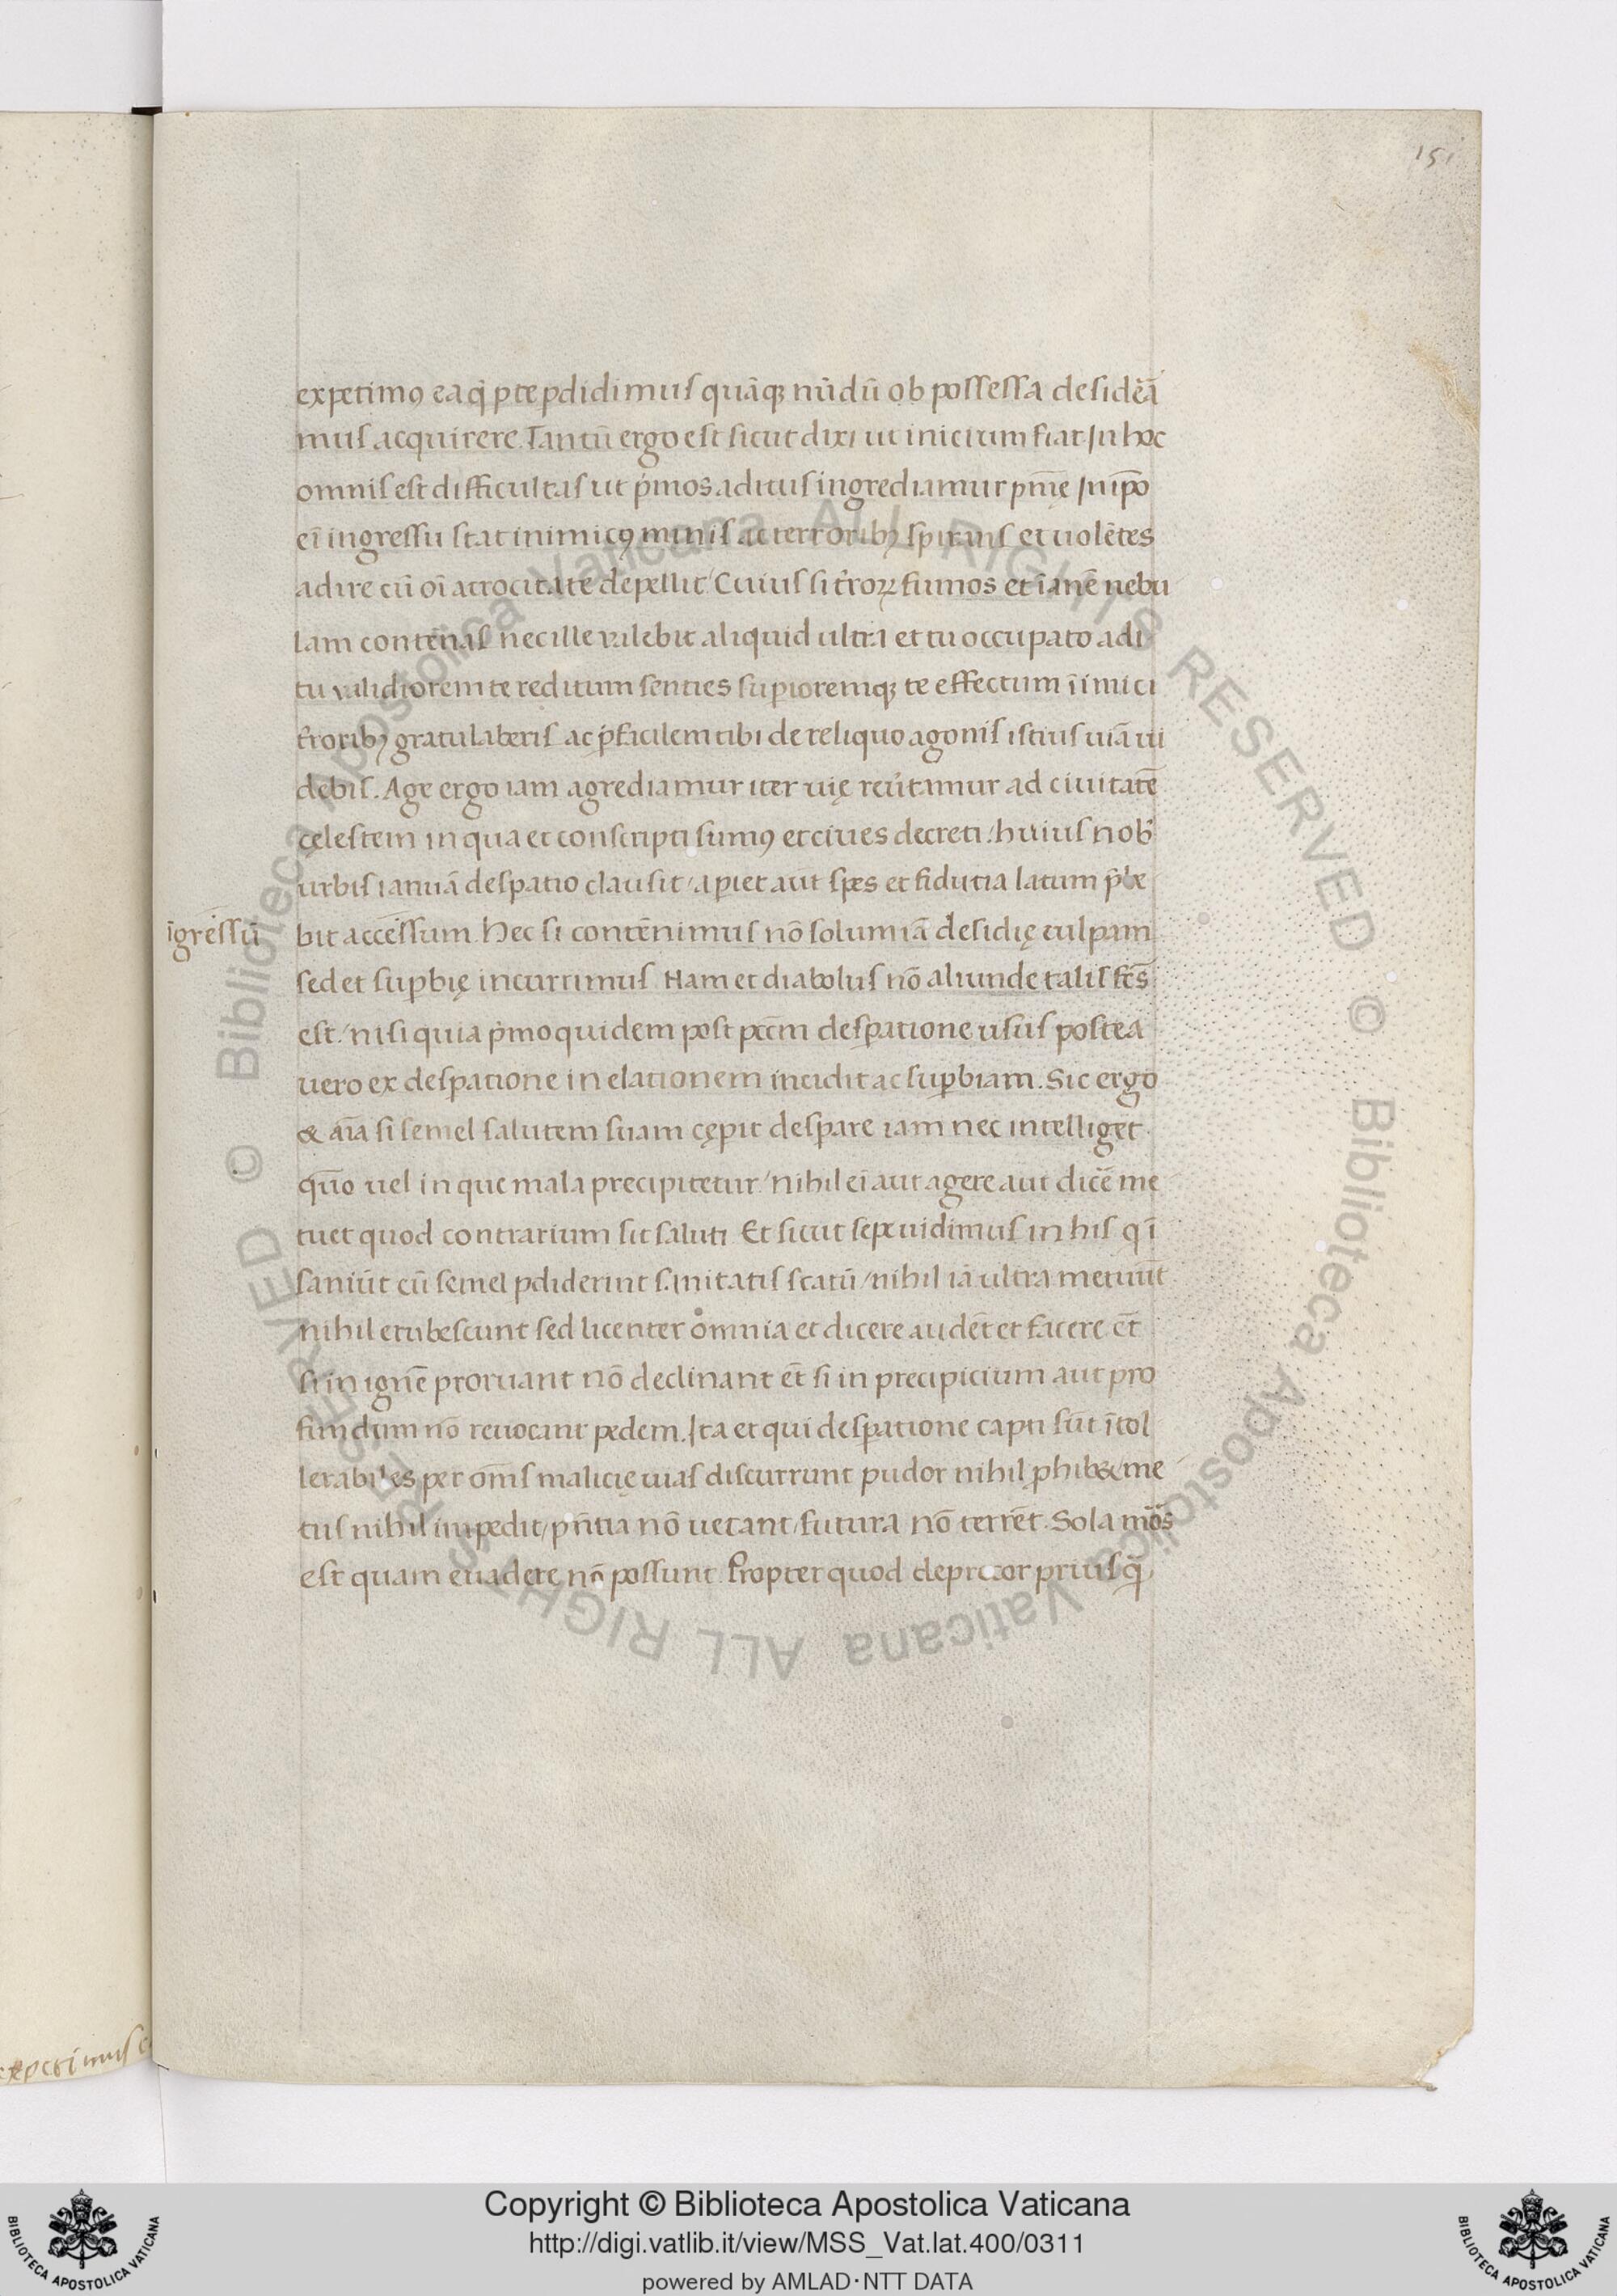 151
expetimꝰ ea q̇ p te pdidimus quā̄qꝫ nūdū ob possessa desidēā
mus acquirere. Tantū ergo est sicut dixi ut inicium fiat. In hoc
omnis est difficultas ut pͥmos aditus ingrediamur pnīę. In ipō
eī ingressu stat inimicꝰ minis ac terroribꝫ spirans et uolētes
adire cū oī atrocitate depellit / Cuius si t̄roꝝ fumos et īanē nebu
lam contēnas nec ille ualebit aliquid ultra et tu occupato adi
tu validiorem te reditum senties supioremqꝫ te effectum īimici
t̄roribꝫ gratulaberis ac p̄facilem tibi de reliquo agonis istius uiā ui
debis. Age ergo iam agrediamur iter uię reūtamur ad ciuitatē
cęlestem in qua et conscripti sumꝰ et ciues decreti / huius nob̄
urbis ianuā despatio clausit / apiet aut spes et fidutia latum p̄be
īgressū bit accessum. Hec si contēnimus nō solum iā desidię culpam
sed et supbię incurrimus. Nam et diabolus nō aliunde talis fc̄s
est / nisi quia pͥmo quidem post pcc̄m despatione usus postea
uero ex despatione in elationem incidit ac supbiam. Sic ergo
& aīa si semel salutem suam cępit despare iam nec intelliget
qūo uel in que mala precipitetur / nihil ei aut agere aut dicē me
tuet quod contrarium sit saluti. Et sicut sepe uidimus in his q ī
saniūt cū semel pdiderint sanitatis statū / nihil iā ultra metuūt
nihil erubescunt sed licenter omnia et dicere audēt et facere et̄
si in ignē proruant nō declinant et̄ si in precipicium aut pro
fundum nō reuocant pedem. Ita et qui despatione capti sūt ītol
lerabiles per om̄s malicię uias discurrunt pudor nihil phib& me
tus nihil impedit / pn̄tia nō uetant / futura nō terrēt. Sola mōs
est quam euadere nō possunt. Propter quod deprecor priusq̄
expetimus e
Copyright © Biblioteca Apostolica Vaticana
http://digi.vatlib.it/view/MSS_Vat.lat.400/0311
powered by AMLAD·NTT DATA
BIBLIOTECA APOSTOLICA VATICANA
BIBLIOTECA APOSTOLICA VATICANA
© Biblioteca Apostolica Vaticana ALL RIGHTS RESERVED © Biblioteca Apostolica Vaticana ALL RIGHTS RESERVED